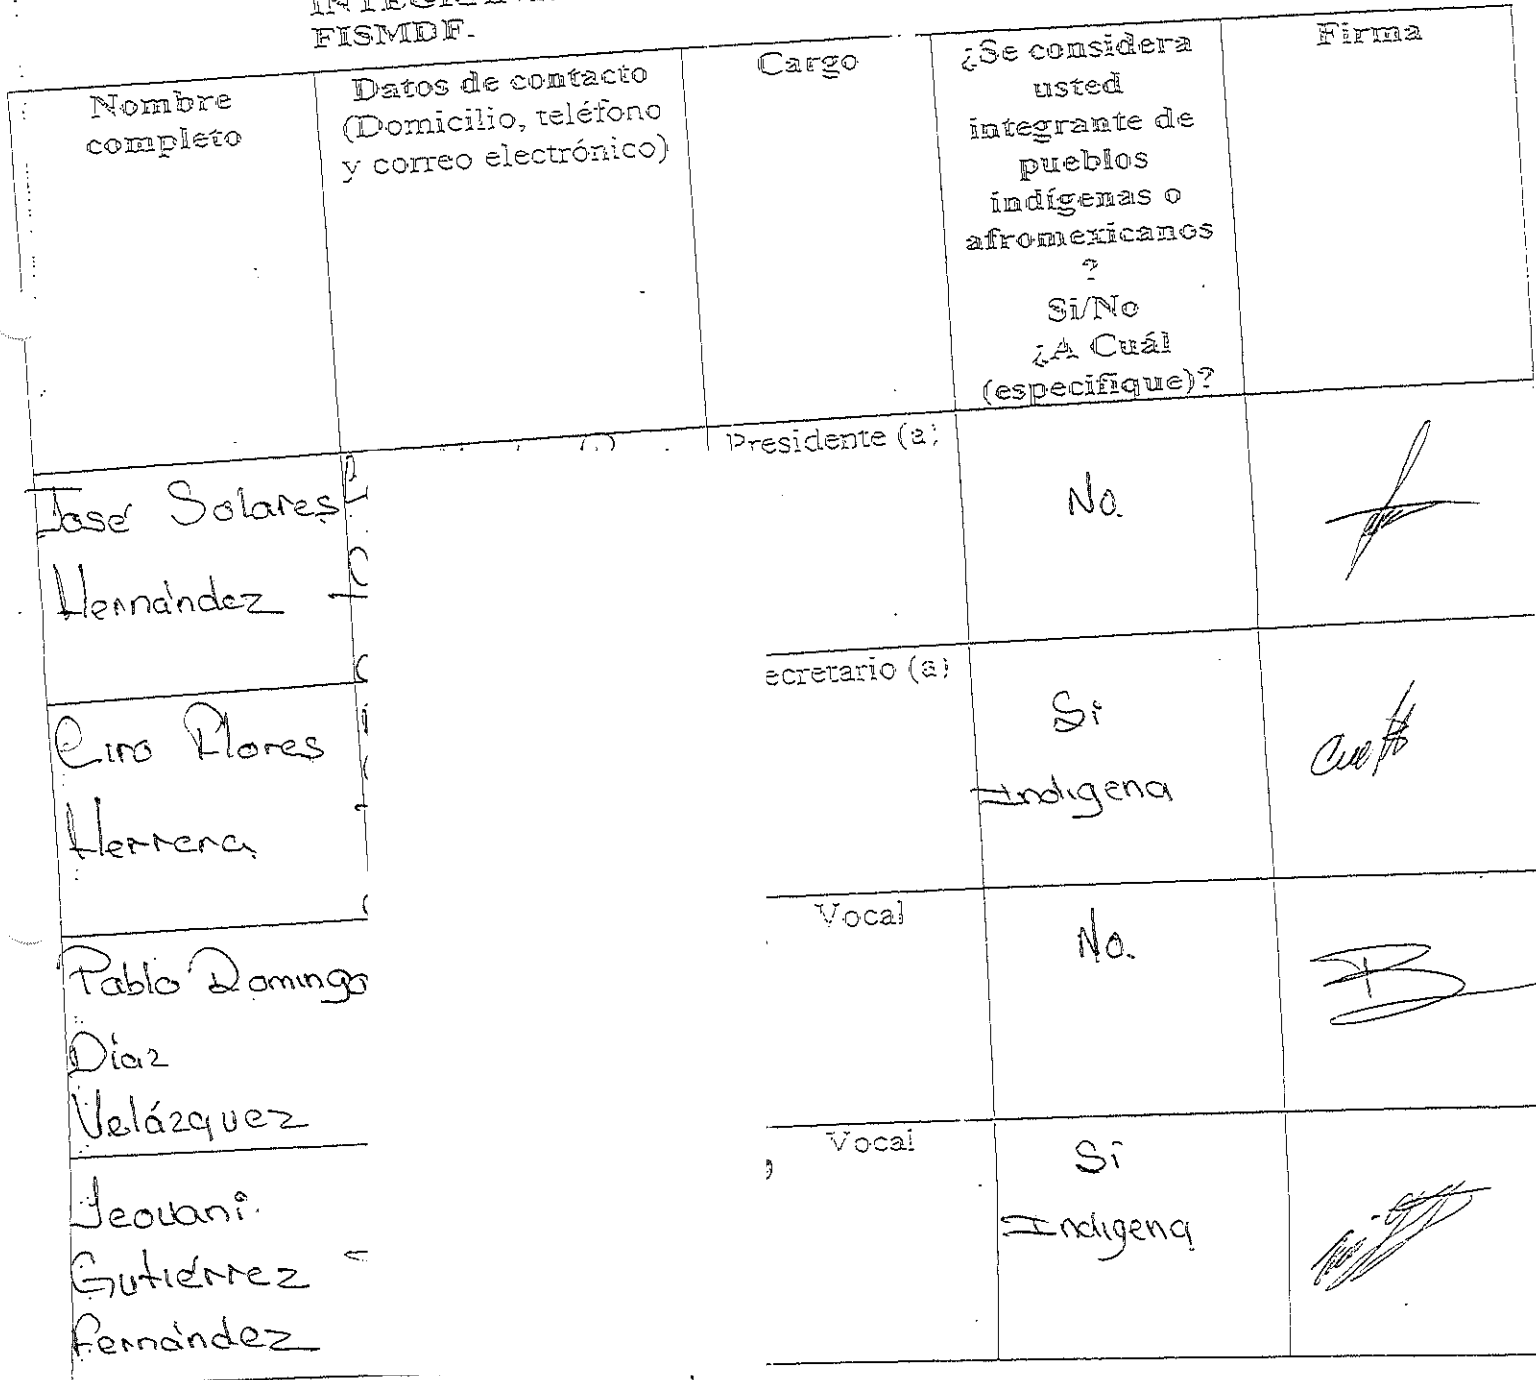 FISMDF.
Nombre
completo
Datos de contacto
(Domicilio, teléfono
y correo electrónico)
Cargo
¿Se considera
usted
integrante de
pueblos
indígenas o
afromexicanos
?
Si/No
¿A Cuál
(especifique)?
Firma
José Solares
Hernández
Presidente (a)
No.
Ciro Flores
Herrera
ecretario (a)
Si
Indigena
Pablo Domingo
Díaz
Velázquez
Vocal
No.
Jeovani
Gutiérrez
Fernández
Vocal
Si
Indigena